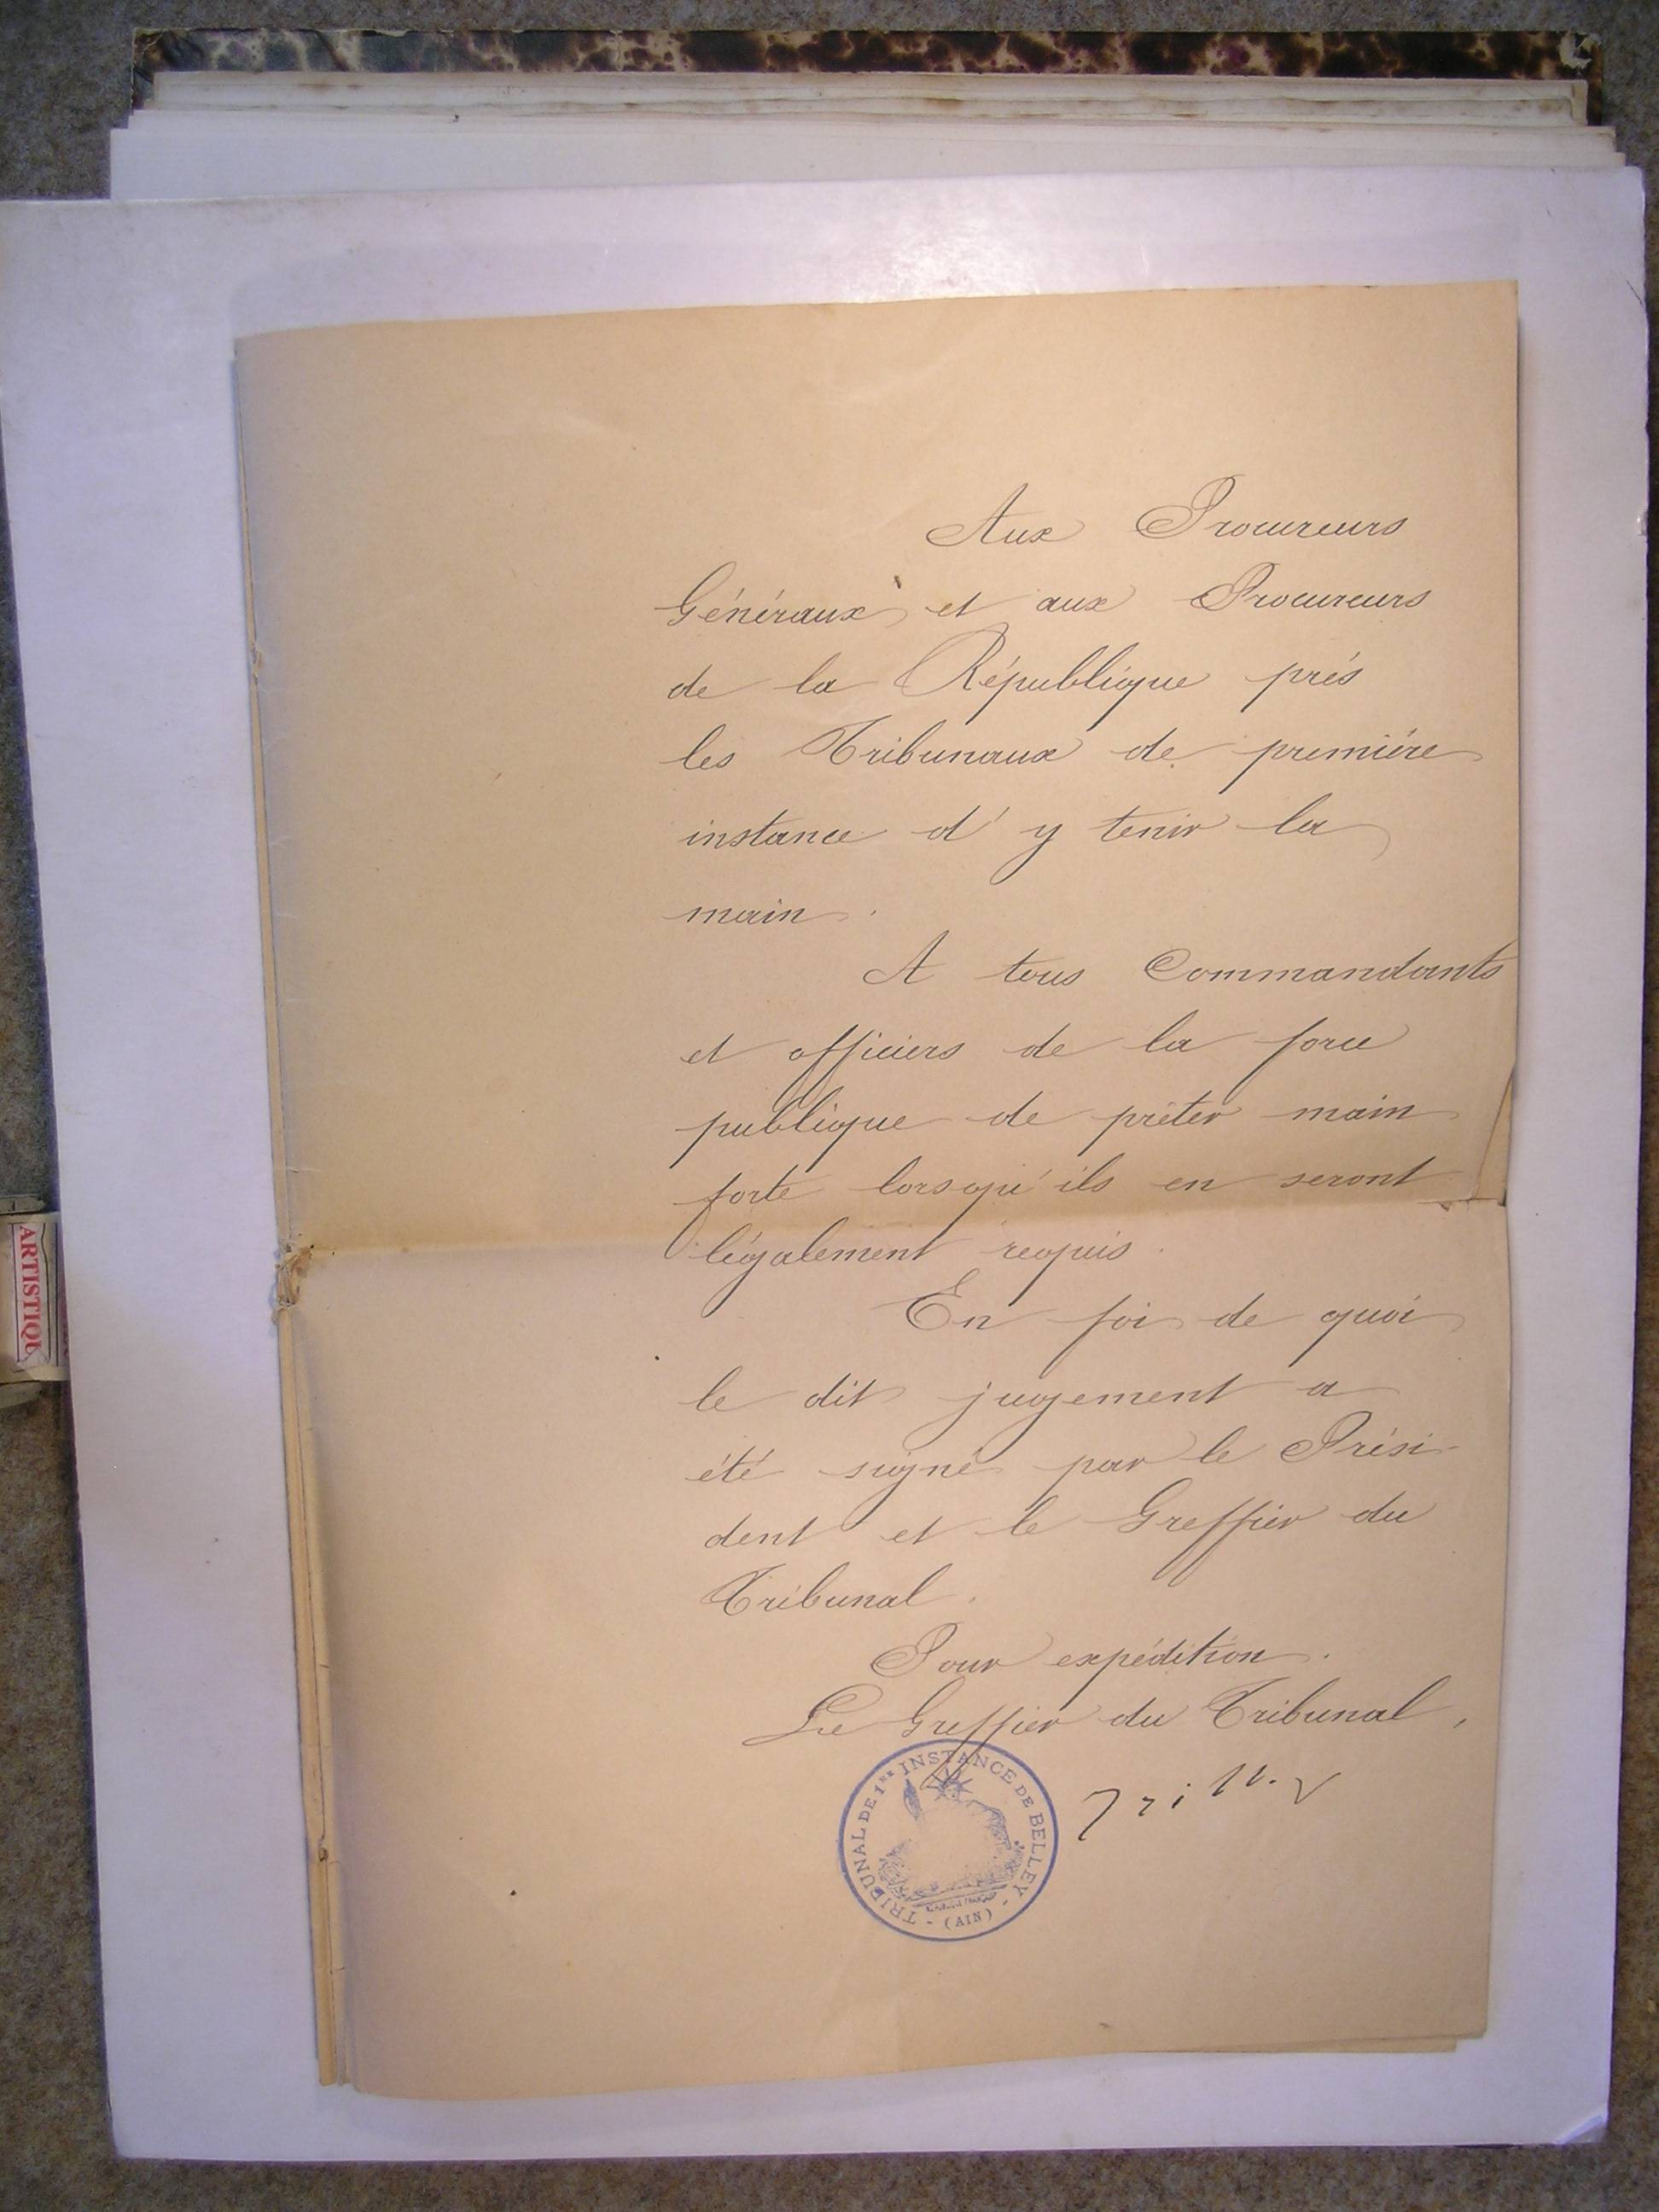 Aux Procureurs
Généraux et aux Procureurs
de la République près
les Tribunaux de première
instance d'y tenir la
main.
A tous Commandants
et officiers de la force
publique de prêter main
forte lorsqu'ils en seront
légalement requis.
En foi de quoi
le dit jugement a
été signé par le Prési-
dent et le Greffier du
Tribunal.
Pour expédition.
Le Greffier du Tribunal,
TRIBUNAL DE 1RE INSTANCE DE BELLEY - (AIN) -
ARTISTIQU